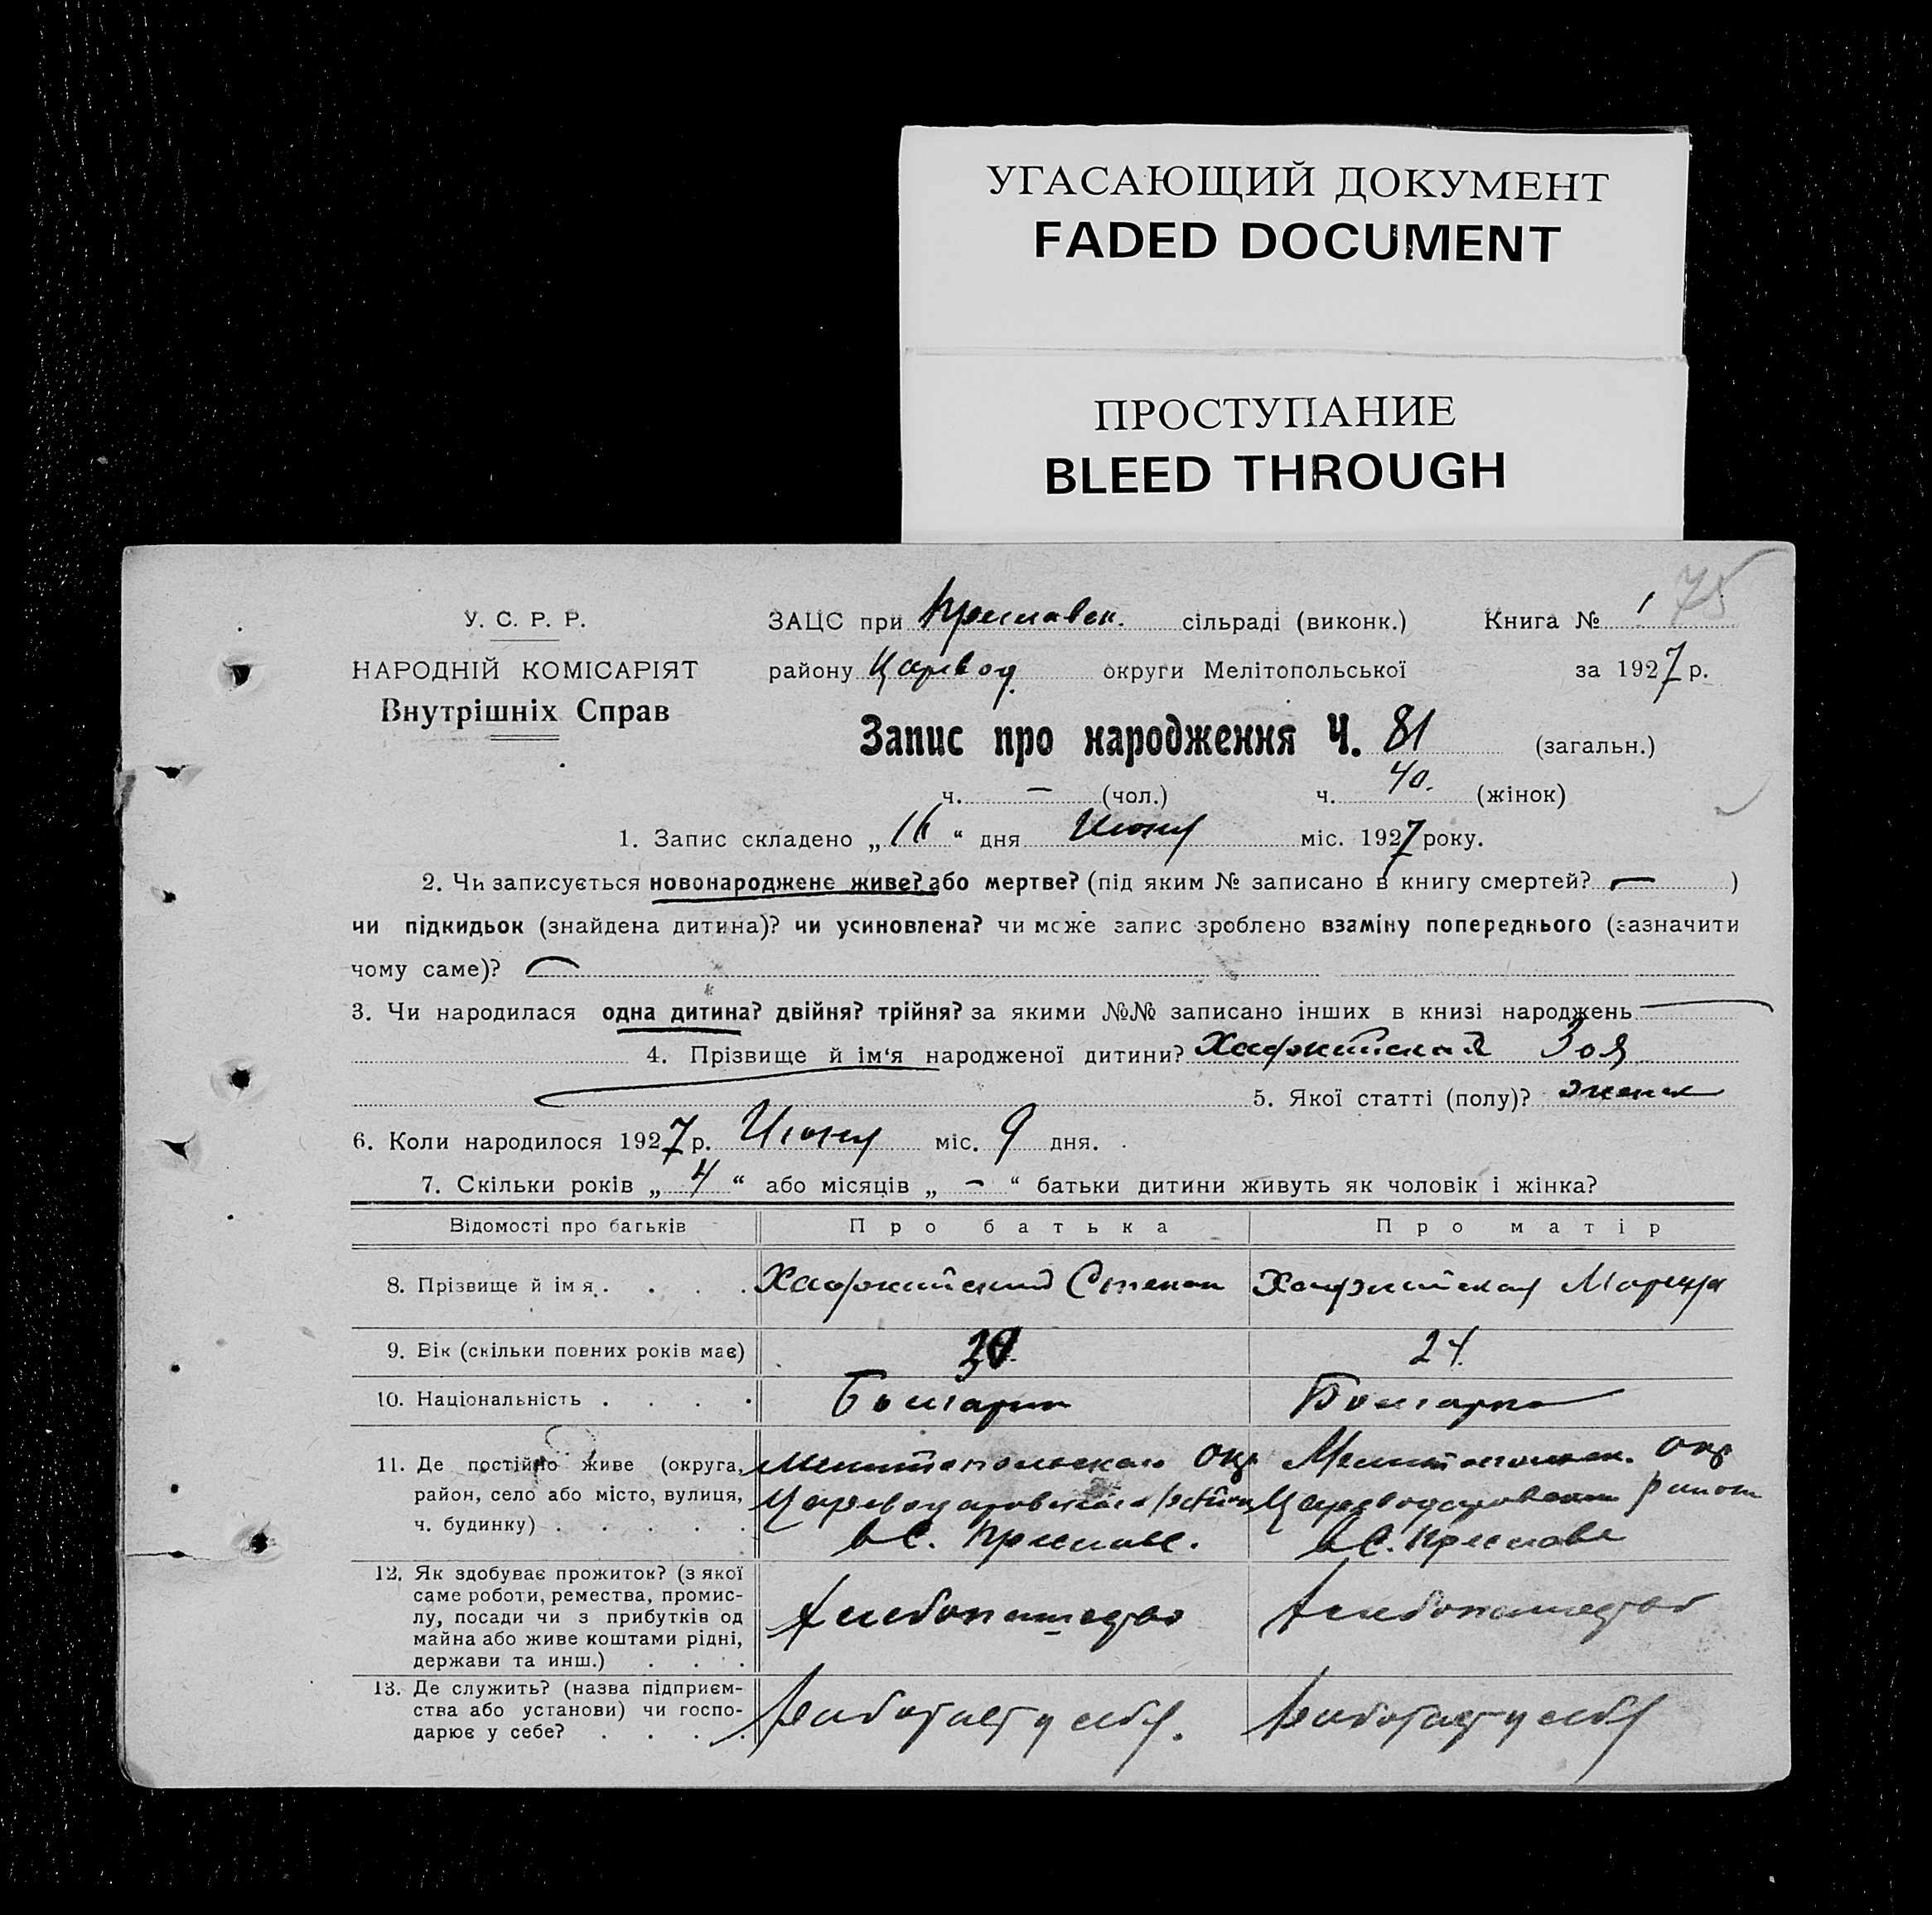 УГАСАЮЩИЙ ДОКУМЕНТ
FADED DOCUMENT
ПРОСТУПАНИЕ
BLEED THROUGH
75
У. С. Р. Р.
НАРОДНІЙ КОМІСАРІЯТ
Внутрішніх Справ
ЗАЦС при Преславск. сільраді (виконк.) Книга № 1
району Царевод. округи Мелітопольської за 1927 р.
Запис про народження Ч. 81 (загальн.)
ч. — (чол.) ч. 40. (жінок)
1. Запис складено „16“ дня Июня міс. 1927 року.
2. Чи записується новонароджене живе? або мертве? (під яким № записано в книгу смертей? — )
чи підкидьок (знайдена дитина)? чи усиновлена? чи може запис зроблено взаміну попереднього (зазначити
чому саме)?
3. Чи народилася одна дитина? двійня? трійня? за якими №№ записано інших в книзі народжень
4. Прізвище й ім'я народженої дитини? Хаджийская Зоя
5. Якої статті (полу)? женск
6. Коли народилося 1927 р. Июня міс. 9 дня.
7. Скільки років „4“ або місяців „-“ батьки дитини живуть як чоловік і жінка?
Відомості про батьків Про батька Про матір
8. Прізвище й імя. . . . . Хаджийский Степан Хаджийская Марица
9. Вік (скільки повних років має) 24
10. Національність . . . . Болгарин Болгарка
11. Де постійно живе (округа, Мелитопольского Окр Мелитопольск. Окр
район, село або місто, вулиця, Цареводаровского района Цареводаровского района
ч. будинку) . . . . . в С. Преславе. в С. Преславе
12. Як здобуває прожиток? (з якої
саме роботи, ремества, промис-
лу, посади чи з прибутків од Хлебопашество Хлебопашество
майна або живе коштами рідні,
держави та инш.) . . . .
13. Де служить? (назва підприєм-
ства або установи) чи госпо- Работает у себя. Работает у себя
дарює у себе? . . . .